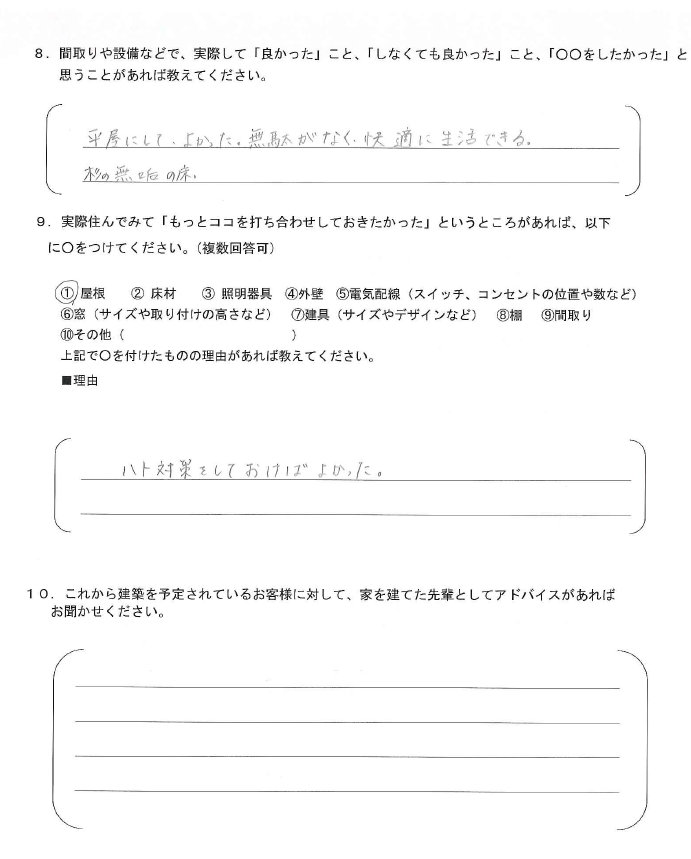 ８．間取りや設備などで、実際して「良かった」こと、「しなくても良かった」こと、「〇〇をしたかった」と
思うことがあれば教えてください。
平屋にして、よかった。無駄がなく、快適に生活できる。
杉の無垢の床。
９．実際住んでみて「もっとココを打ち合わせしておきたかった」というところがあれば、以下
に〇をつけてください。（複数回答可）
① 屋根　② 床材　③ 照明器具　④外壁　⑤電気配線（スイッチ、コンセントの位置や数など）
⑥窓（サイズや取り付けの高さなど）　⑦建具（サイズやデザインなど）　⑧棚　⑨間取り
⑩その他（　　　　　　　　　　　　　）
上記で〇を付けたものの理由があれば教えてください。
■理由
ハト対策をしておけばよかった。
１０．これから建築を予定されているお客様に対して、家を建てた先輩としてアドバイスがあれば
お聞かせください。